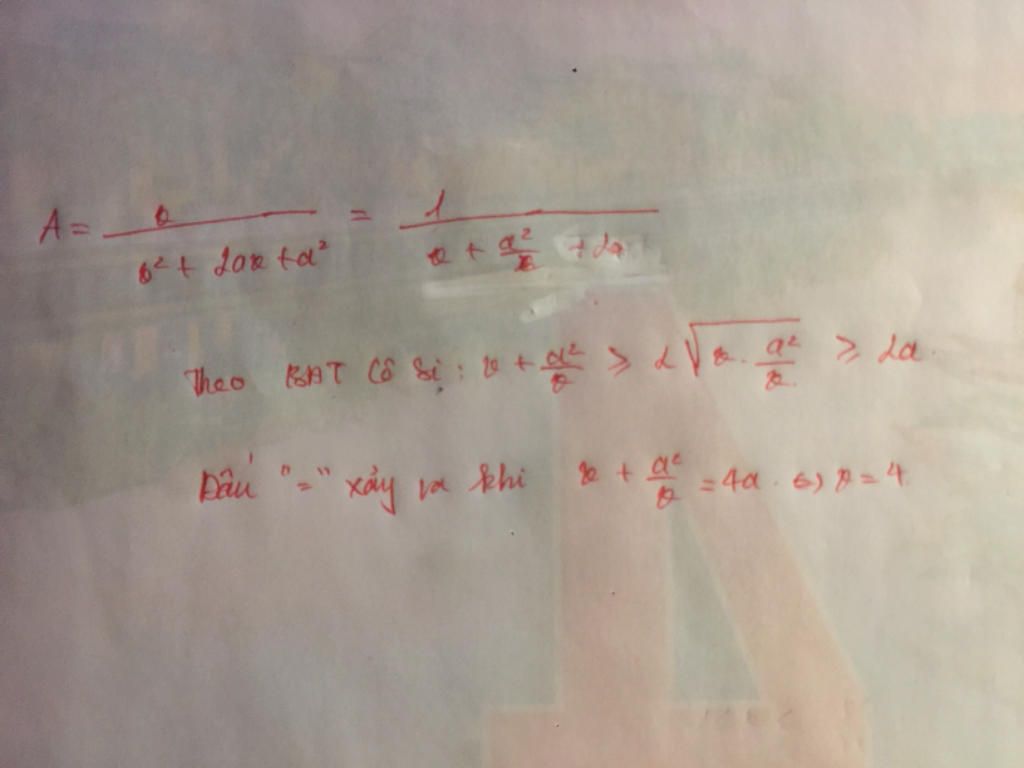 A = x / (x² + 2ax + a²) = 1 / (x + a²/x + 2a)
Theo BĐT Cô Si : x + a²/x ≥ 2√(x . a²/x) ≥ 2a.
Dấu "=" xảy ra khi x + a²/x = 4a . ⇔ x = 4